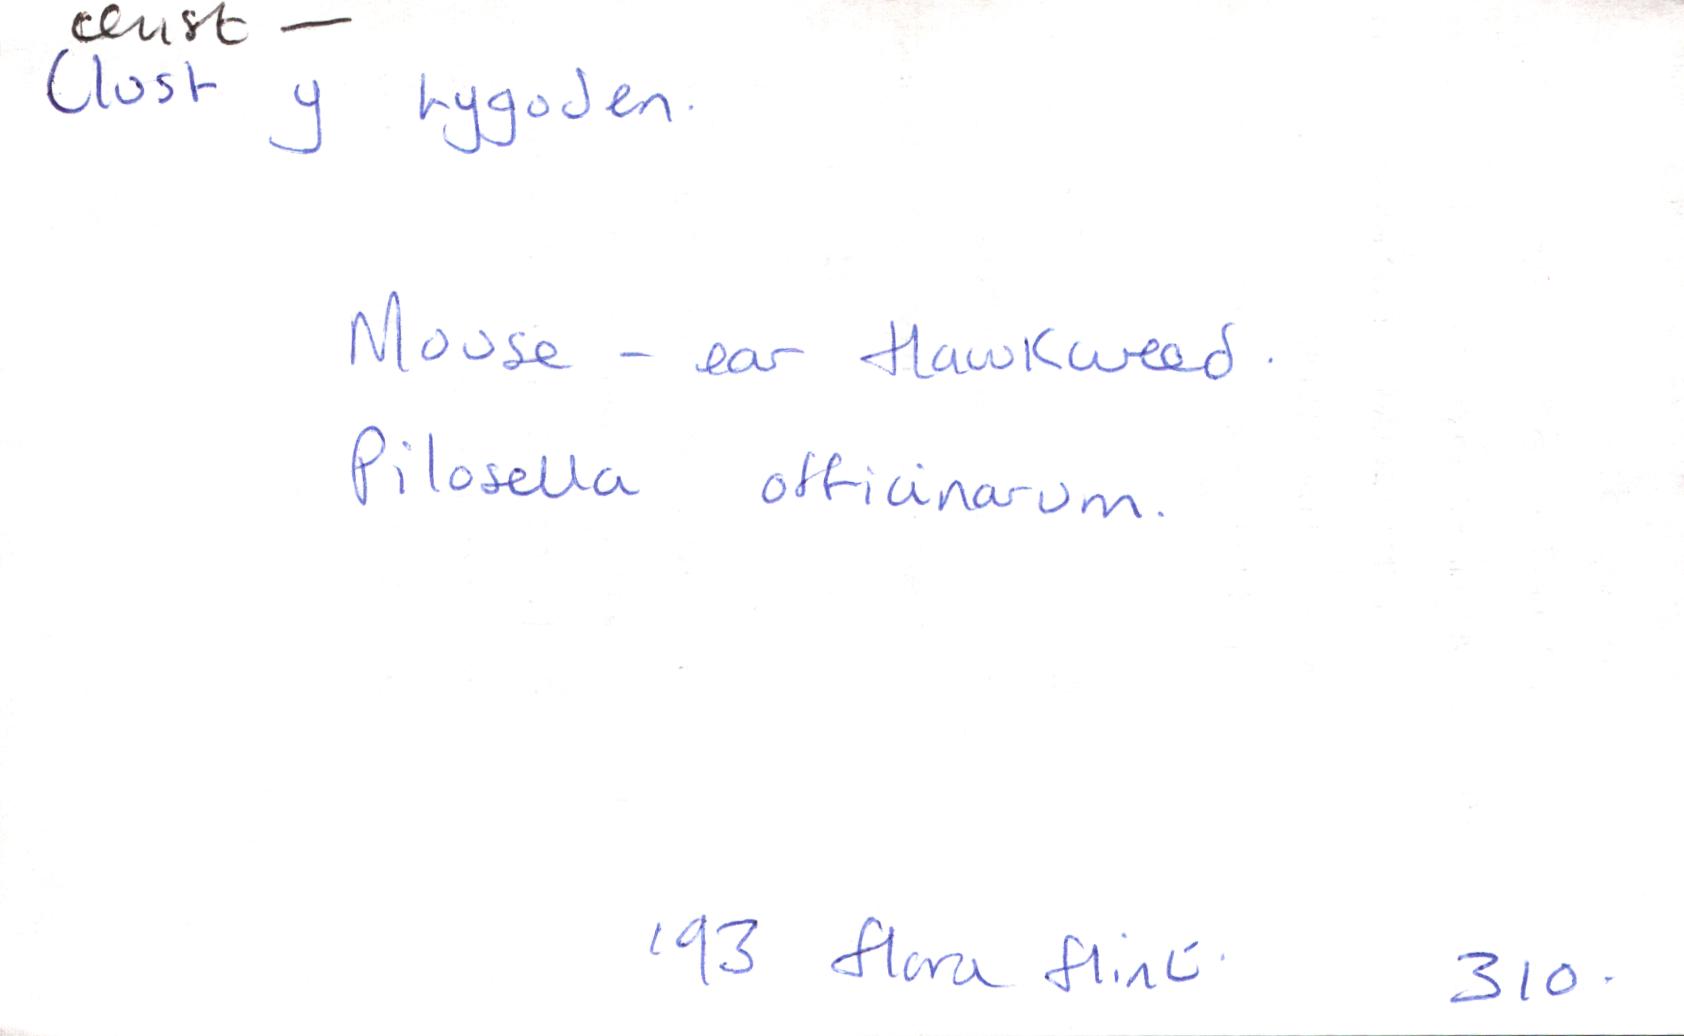 clust —
Clust y llygoden.
Mouse - ear Hawkweed.
Pilosella officinarum.
'93 flora flint. 310.